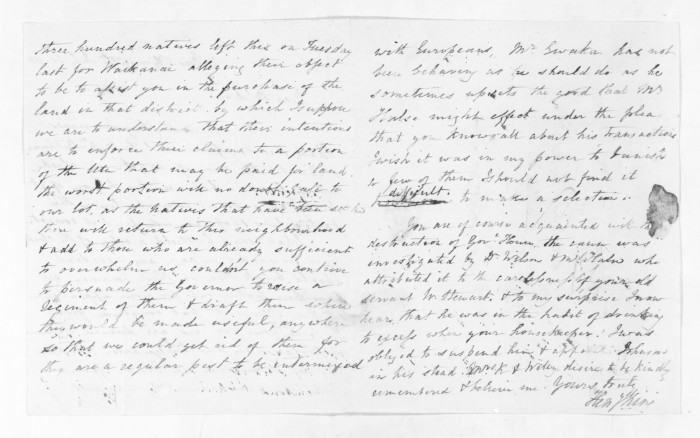 Three hundred natives left this on Tuesday
last for Waikanai alleging their object
to be to assist you in the purchase of the
land in that district. by which I suppose
we are to understand that their intentions
are to enforce their claims to a portion
of the Utu that may be paid for land.
the worst portion will no doubt fall to
our lot, as the Natives that have been
there will return to this neighbourhood
& add to those who are already sufficient
to overwhelm us, couldn't you contrive
to persuade the Governor to raise a
regiment of them & draft them where
they would be made useful, anywhere
so that we could get rid of them for
they are a regular pest to be intermixed
with Europeans, Mr has not
been behaving as he should do as he
sometimes upsets the good that Mr
Halse might effect under the plea
that you know all about his transactions
I wish it was in my power to banish
a few of them I should not find it
difficult to make a selection.
You are of course acquainted with the
destruction of Gov House, the cause was
investigated by Dr Wilson & Mr Halse who
attributed it to the carelessness of your old
servant W. Stewart, & to my surprise I now
hear, that he was in the habit of drinking
to excess when your housekeeper. I was
obliged to suspend him & appoint Johnson
in his stead. Mrs K & Willy desire to be kindly
remembered & believe me Yours truly
Hen King